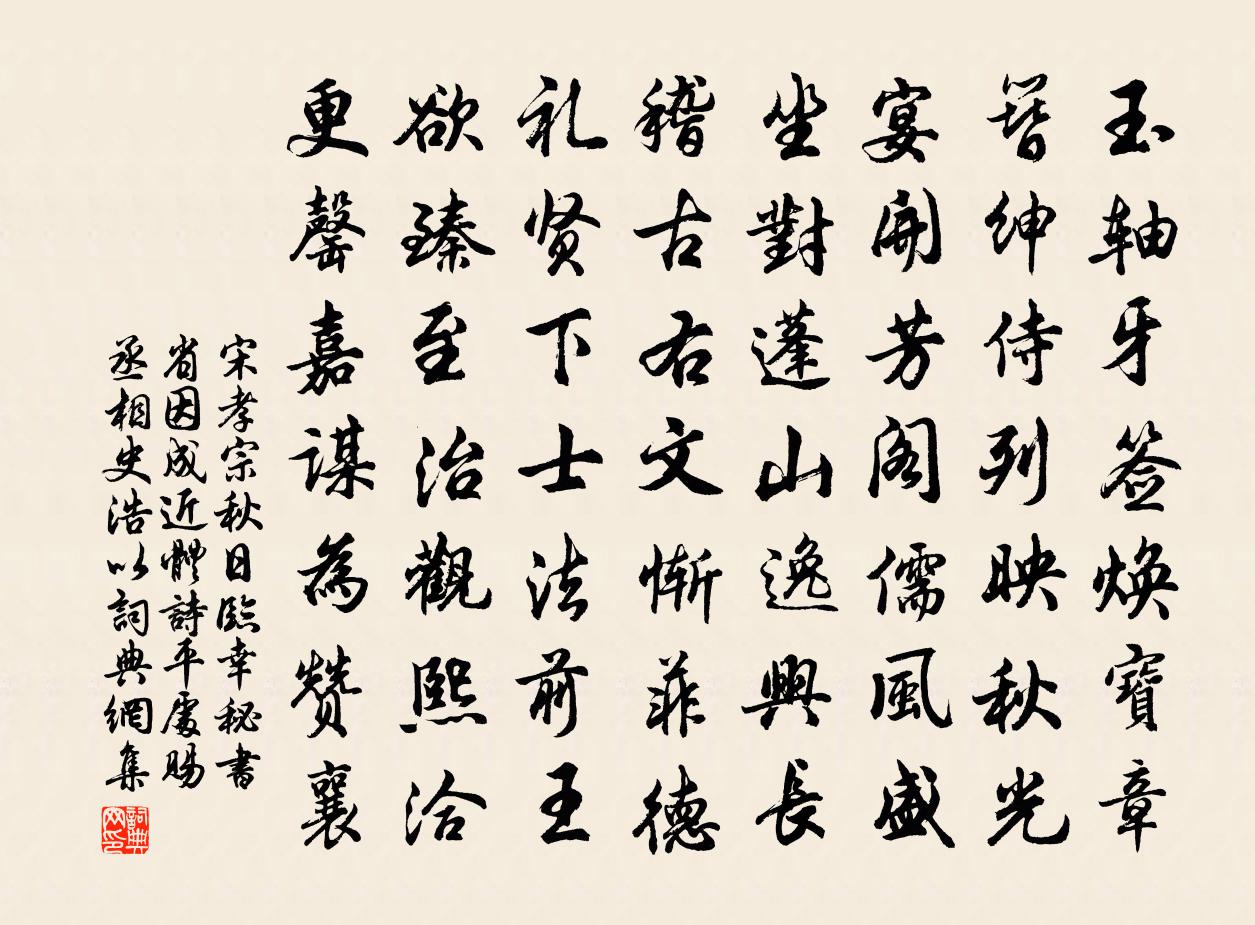 玉軸牙签煥寶章
簪紳侍列映秋光
宴開芳阁儒風盛
坐對蓬山逸興長
稽古右文慚菲德
礼贤下士法前王
欲臻至治觀熙洽
更罄嘉謀為赞襄
宋孝宗秋日臨幸秘書
省因成近體詩平處賜
丞相史浩以詞典網集
詞典
网印